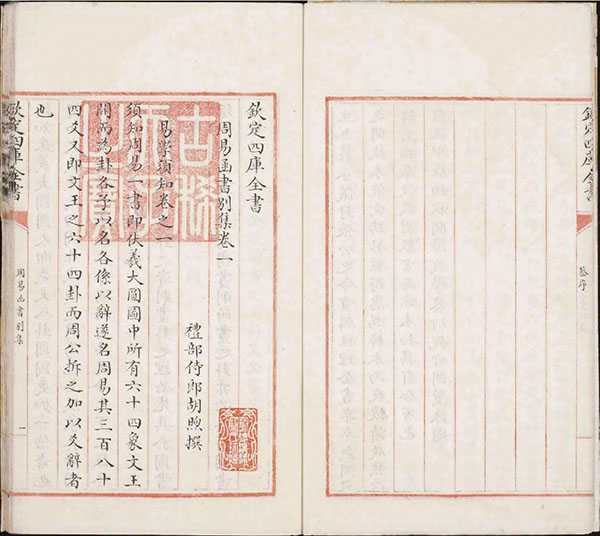 欽定四庫全書
欽定四庫全書
周易函書別集卷一
禮部侍郎胡煦撰
易學須知卷之一
須知周易一書即伏羲大圓圖中所有六十四象文王
開而為卦各予以名各係以辭遂名周易其三百八十
四爻又即文王之六十四卦而周公拆之加以爻辭者
也
欽定四庫全書
周易函書別集
一
古稀
天子
之寶